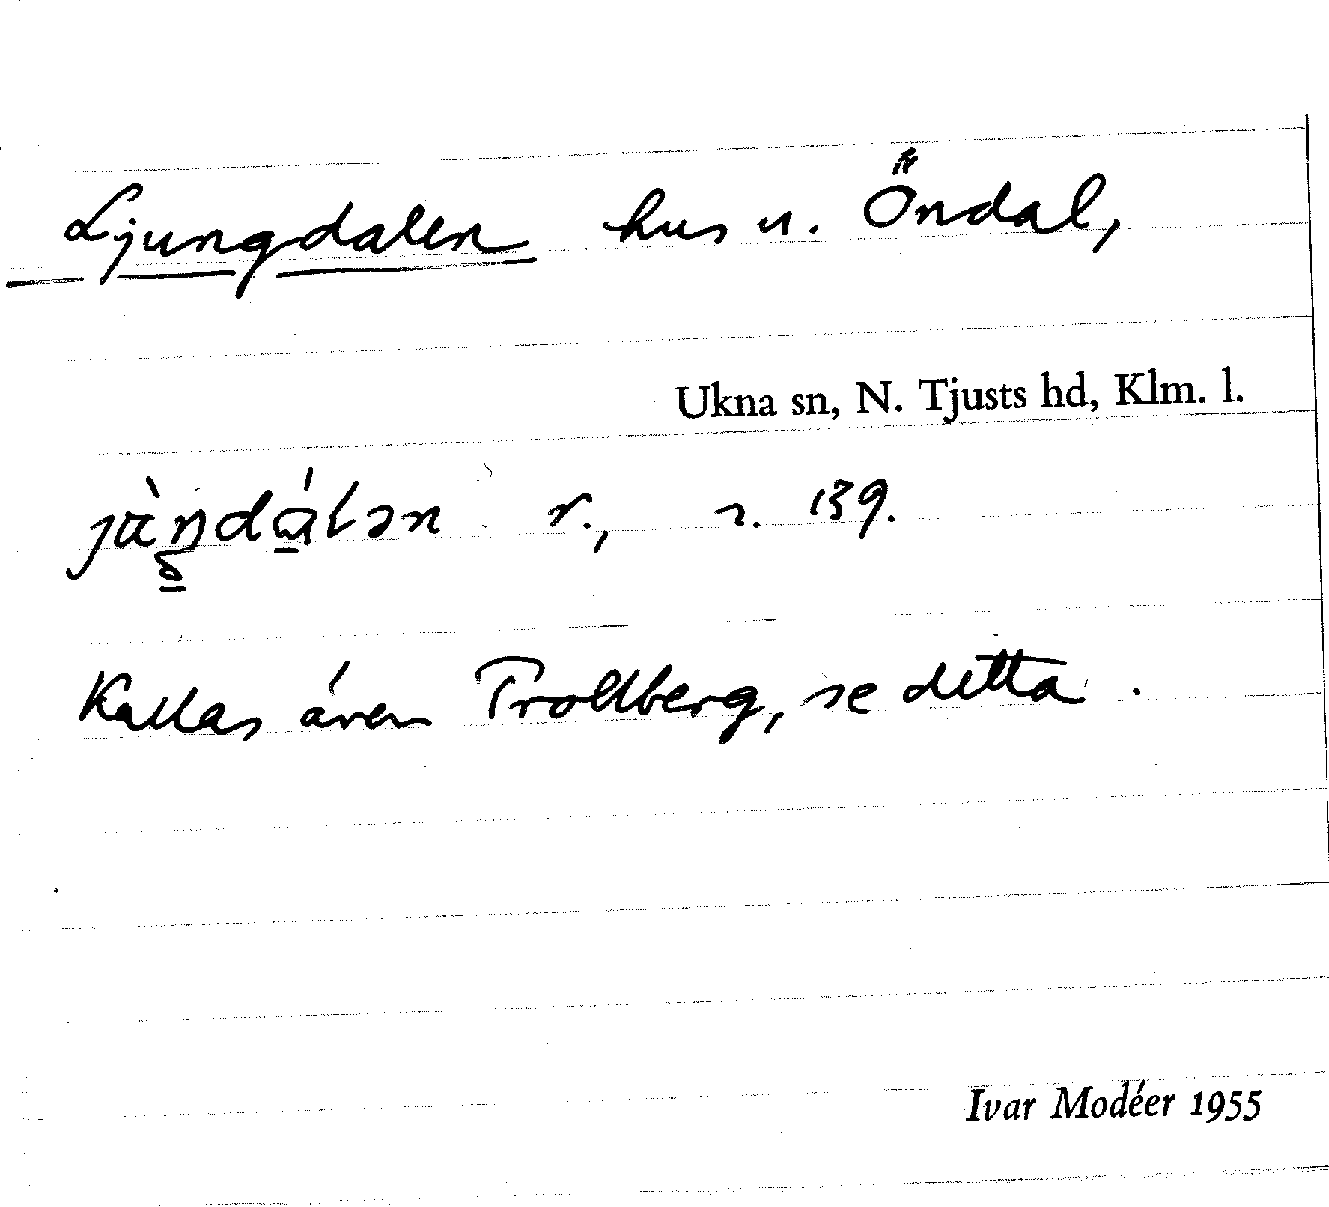 Ljungdalen hus u. Öndal,
Ukna sn, N. Tjusts hd, Klm. l.
r., s. 139.
Kallas även Trollberg, se detta.
Ivar Modéer 1955